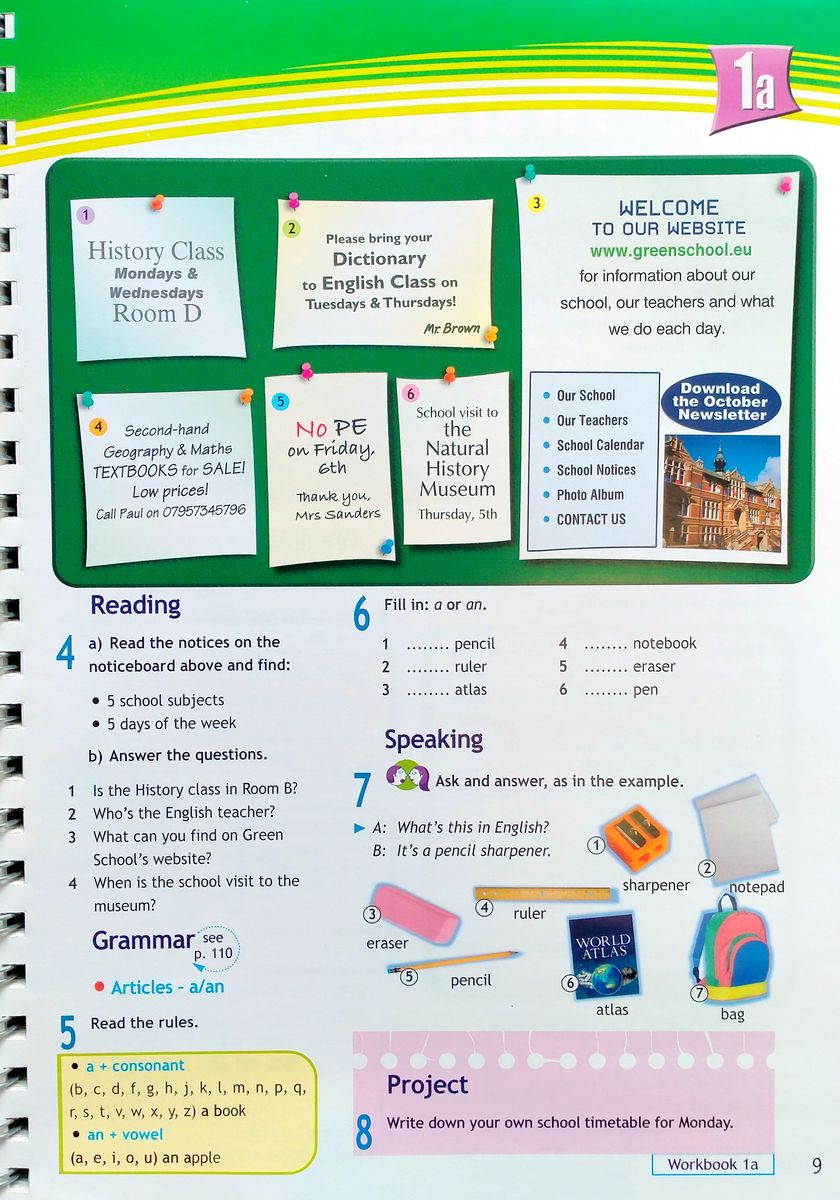 1a
1
History Class
Mondays &
Wednesdays
Room D
2
Please bring your
Dictionary
to English Class on
Tuesdays & Thursdays!
Mr. Brown
3
WELCOME
TO OUR WEBSITE
www.greenschool.eu
for information about our
school, our teachers and what
we do each day.
• Our School
• Our Teachers
• School Calendar
• School Notices
• Photo Album
• CONTACT US
Download
the October
Newsletter
4
Second-hand
Geography & Maths
TEXTBOOKS for SALE!
Low prices!
Call Paul on 07957345796
5
No PE
on Friday,
6th
Thank you,
Mrs Sanders
6
School visit to
the
Natural
History
Museum
Thursday, 5th
Reading
4 a) Read the notices on the
noticeboard above and find:
• 5 school subjects
• 5 days of the week
b) Answer the questions.
1 Is the History class in Room B?
2 Who's the English teacher?
3 What can you find on Green
School's website?
4 When is the school visit to the
museum?
Grammar see
p. 110
• Articles - a/an
5 Read the rules.
• a + consonant
(b, c, d, f, g, h, j, k, l, m, n, p, q,
r, s, t, v, w, x, y, z) a book
• an + vowel
(a, e, i, o, u) an apple
6 Fill in: a or an.
1 ........ pencil
2 ........ ruler
3 ........ atlas
4 ........ notebook
5 ........ eraser
6 ........ pen
Speaking
7 Ask and answer, as in the example.
▶ A: What's this in English?
B: It's a pencil sharpener.
1
sharpener
2
notepad
3
eraser
4
ruler
5
pencil
WORLD
ATLAS
6
atlas
7
bag
Project
8 Write down your own school timetable for Monday.
Workbook 1a
9